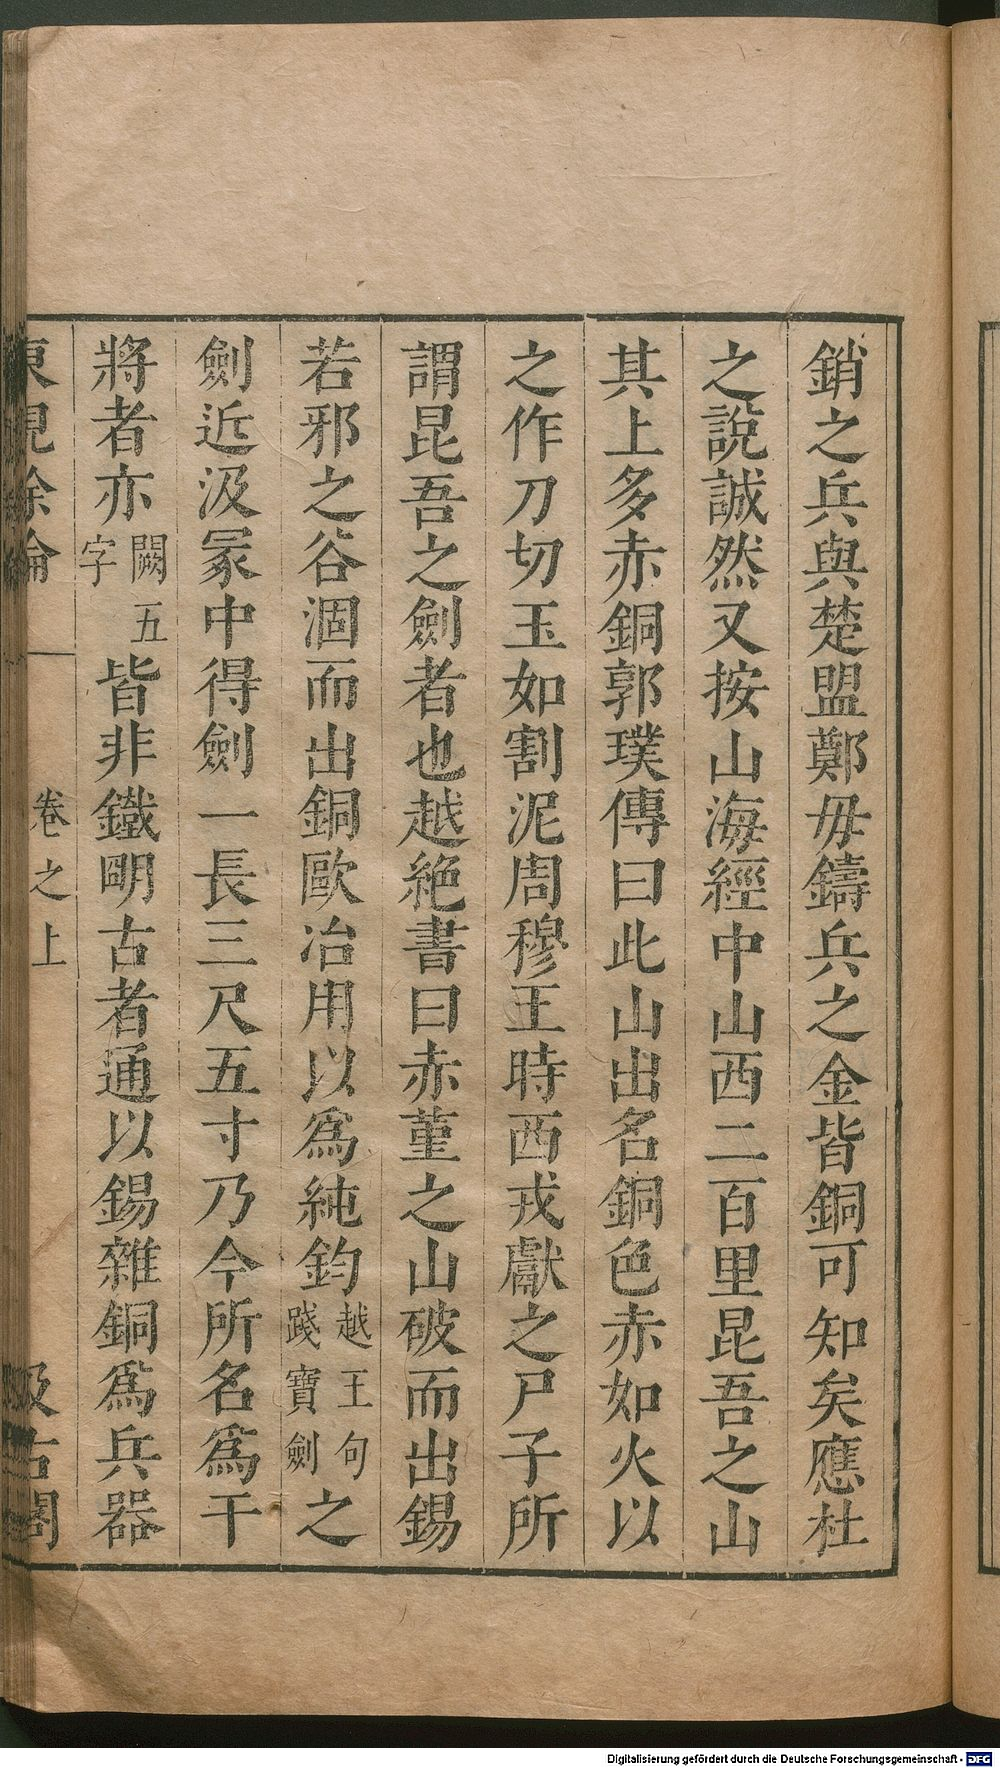 銷之兵與楚盟鄭毋鑄兵之金皆銅可知矣應杜
之說誠然又按山海經中山西二百里昆吾之山
其上多赤銅郭璞傳曰此山出名銅色赤如火以
之作刀切玉如割泥周穆王時西戎獻之尸子所
謂昆吾之劍者也越絶書曰赤堇之山破而出錫
若邪之谷涸而出銅歐冶用以爲純鈞越王句踐寶劍之
劍近汲冢中得劍一長三尺五寸乃今所名爲干
將者亦闕五字皆非鐵明古者通以錫雜銅爲兵器
東觀餘論 卷之上 汲古閣
Digitalisierung gefördert durch die Deutsche Forschungsgemeinschaft - DFG